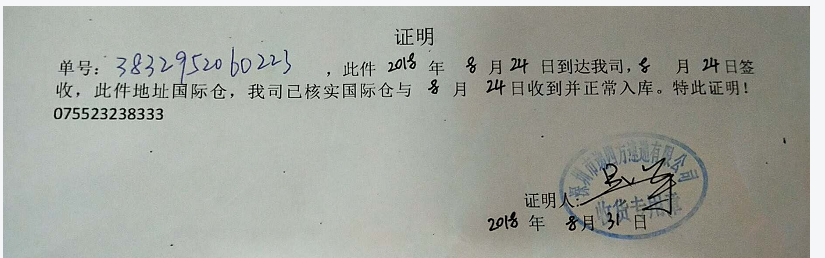 证明
单号：3832952060223，此件 2018 年 8 月 24 日到达我司，8 月 24 日签
收，此件地址国际仓，我司已核实国际仓与 8 月 24 日收到并正常入库。特此证明！
075523238333
深圳市 四方速递有限公司
收货专用章
证明人：
2018 年 8 月 31 日